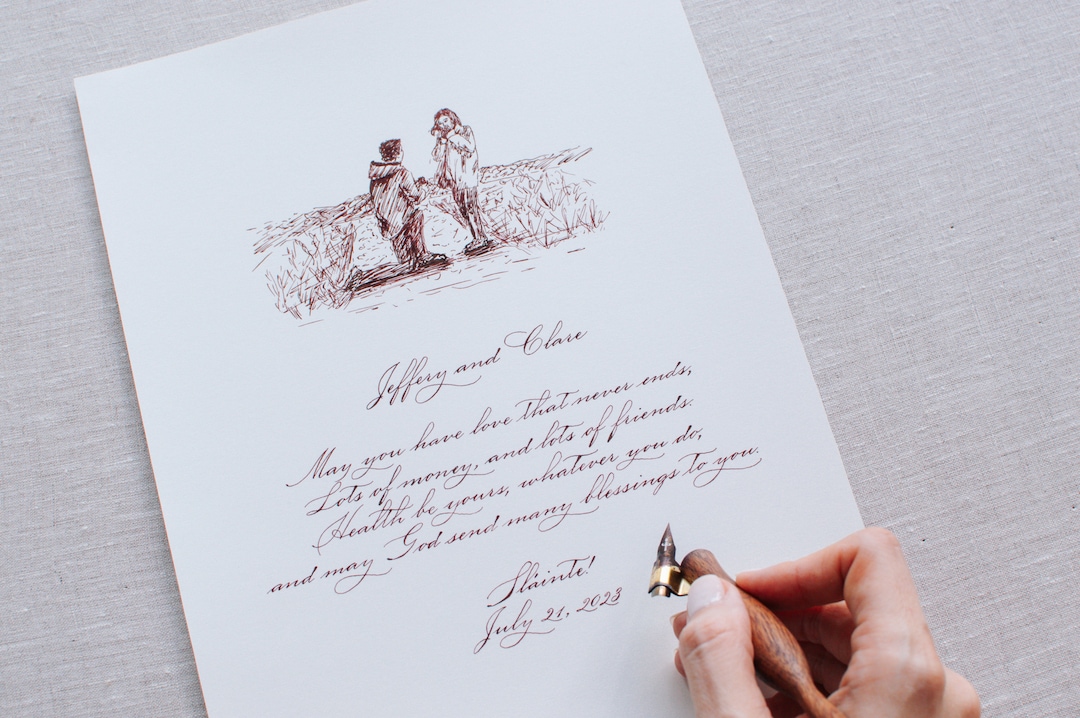 Jeffery and Clare
May you have love that never ends,
Lots of money, and lots of friends.
Health be yours, whatever you do,
and may God send many blessings to you.
Sláinte!
July 21, 2023